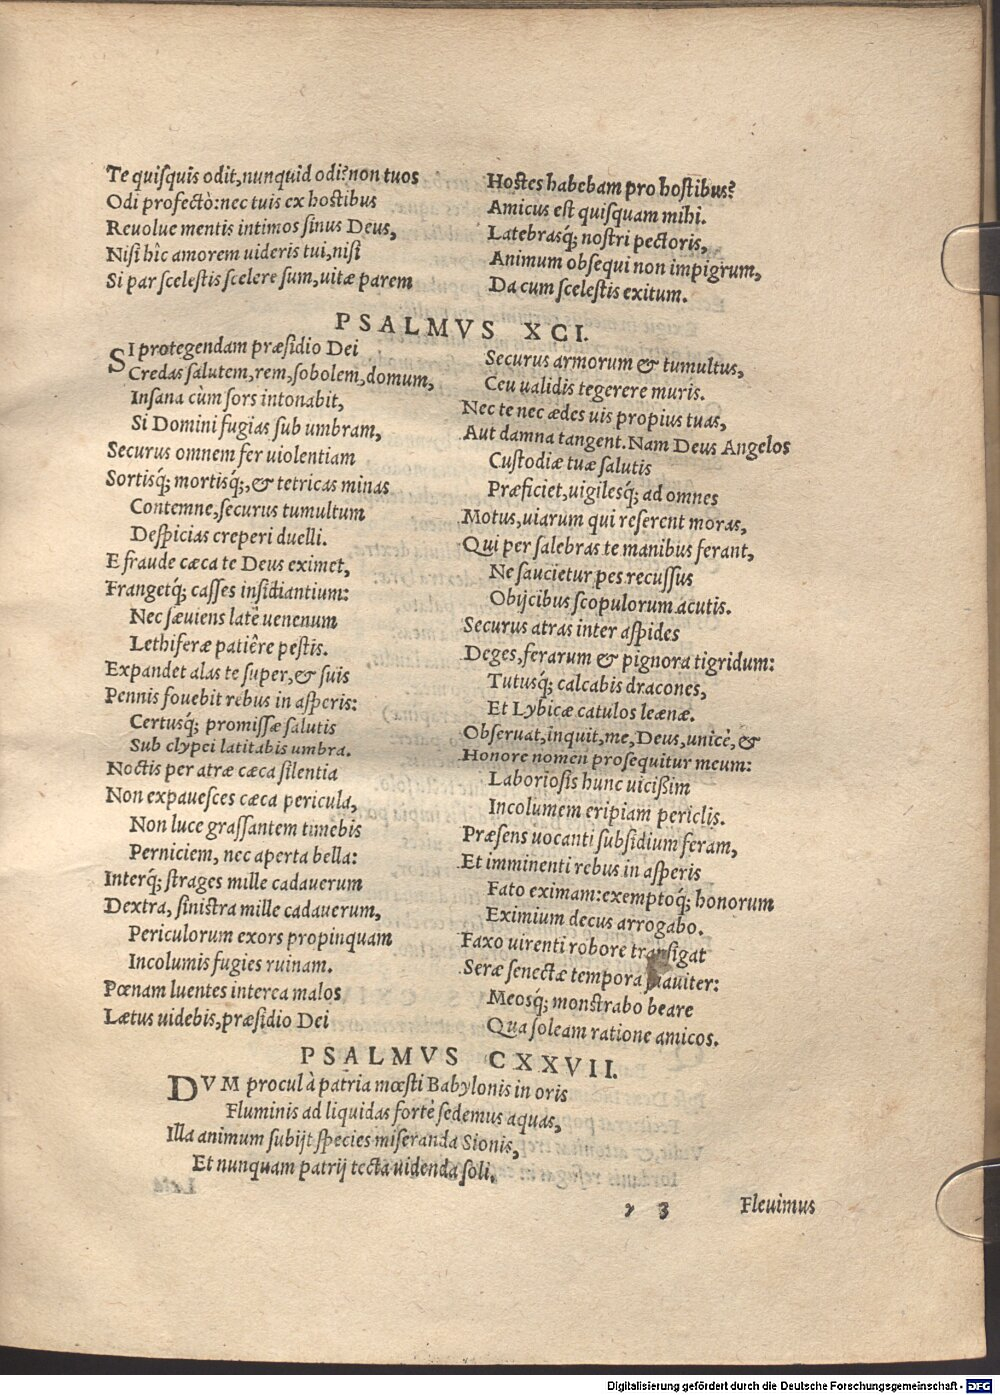 Te quisquis odit, nunquid odi? non tuos
Hostes habebam pro hostibus?
Odi profectò: nec tuis ex hostibus
Amicus est quisquam mihi.
Reuolue mentis intimos sinus Deus,
Latebrasq́; nostri pectoris,
Nisi hîc amorem uideris tui, nisi
Animum obsequi non impigrum,
Si par scelestis scelere sum, uitæ parem
Da cum scelestis exitum.
PSALMVS XCI.
SI protegendam præsidio Dei
Credas salutem, rem, sobolem, domum,
Insana cùm sors intonabit,
Si Domini fugias sub umbram,
Securus omnem fer uiolentiam
Sortisq́; mortisq́;, & tetricas minas
Contemne, securus tumultum
Despicias creperi duelli.
E fraude cæca te Deus eximet,
Frangetq́; casses insidiantium:
Nec sæuiens latè uenenum
Lethiferæ patiêre pestis.
Expandet alas te super, & suis
Pennis fouebit rebus in asperis:
Certusq́; promissæ salutis
Sub clypei latitabis umbra.
Noctis per atræ cæca silentia
Non expauesces cæca pericula,
Non luce grassantem timebis
Perniciem, nec aperta bella:
Interq́; strages mille cadauerum
Dextra, sinistra mille cadauerum,
Periculorum exors propinquam
Incolumis fugies ruinam.
Pœnam luentes interea malos
Lætus uidebis, præsidio Dei
Securus armorum & tumultus,
Ceu ualidis tegerere muris.
Nec te nec ædes uis propius tuas,
Aut damna tangent. Nam Deus Angelos
Custodiæ tuæ salutis
Præficiet, uigilesq́; ad omnes
Motus, uiarum qui reserent moras,
Qui per salebras te manibus ferant,
Ne saucietur pes recussus
Obijcibus scopulorum acutis.
Securus atras inter aspides
Deges, ferarum & pignora tigridum:
Tutusq́; calcabis dracones,
Et Lybicæ catulos leænæ.
Obseruat, inquit, me, Deus, unicè, &
Honore nomen prosequitur meum:
Laboriosis hunc uicißim
Incolumem eripiam periclis.
Præsens uocanti subsidium feram,
Et imminenti rebus in asperis
Fato eximam: exemptoq́; honorum
Eximium decus arrogabo.
Faxo uirenti robore transigat
Seræ senectæ tempora suauiter:
Meosq́; monstrabo beare
Qua soleam ratione amicos.
PSALMVS CXXVII.
DVM procul à patria mœsti Babylonis in oris
Fluminis ad liquidas fortè sedemus aquas,
Illa animum subijt species miseranda Sionis,
Et nunquam patrij tecta uidenda soli,
r 3
Fleuimus
Digitalisierung gefördert durch die Deutsche Forschungsgemeinschaft - DFG